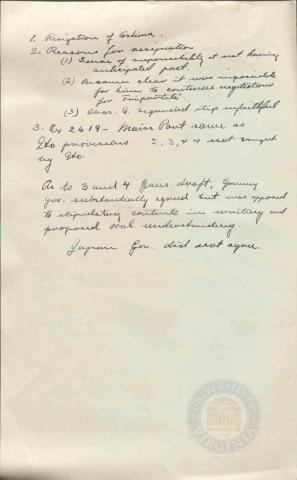 1. Resignation of Oshima.
2. Reasons for resignation
(1) Sense of responsibility at not having
anticipated pact.
(2) Became clear it was impossible
for him to continue negotiations
for Tripartite.
(3) Amb. G. regarded step unfaithful
3. Ex 2619 - Main Pact same as
Ito provisions 2, 3, + 4 not brought
by Ito.
As to 3 and 4 Gaus draft, Germany
gov. substantially agreed but was opposed
to stipulatory contents in writing and
proposed oral understanding.
Japan Gov. did not agree.
UNIVERSITY OF
VIRGINIA